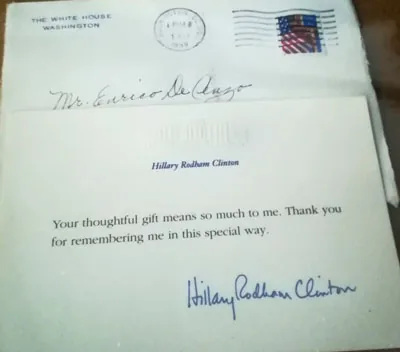 THE WHITE HOUSE
WASHINGTON
Mr. Enrico De Anzo
Hillary Rodham Clinton
Your thoughtful gift means so much to me. Thank you
for remembering me in this special way.
Hillary Rodham Clinton